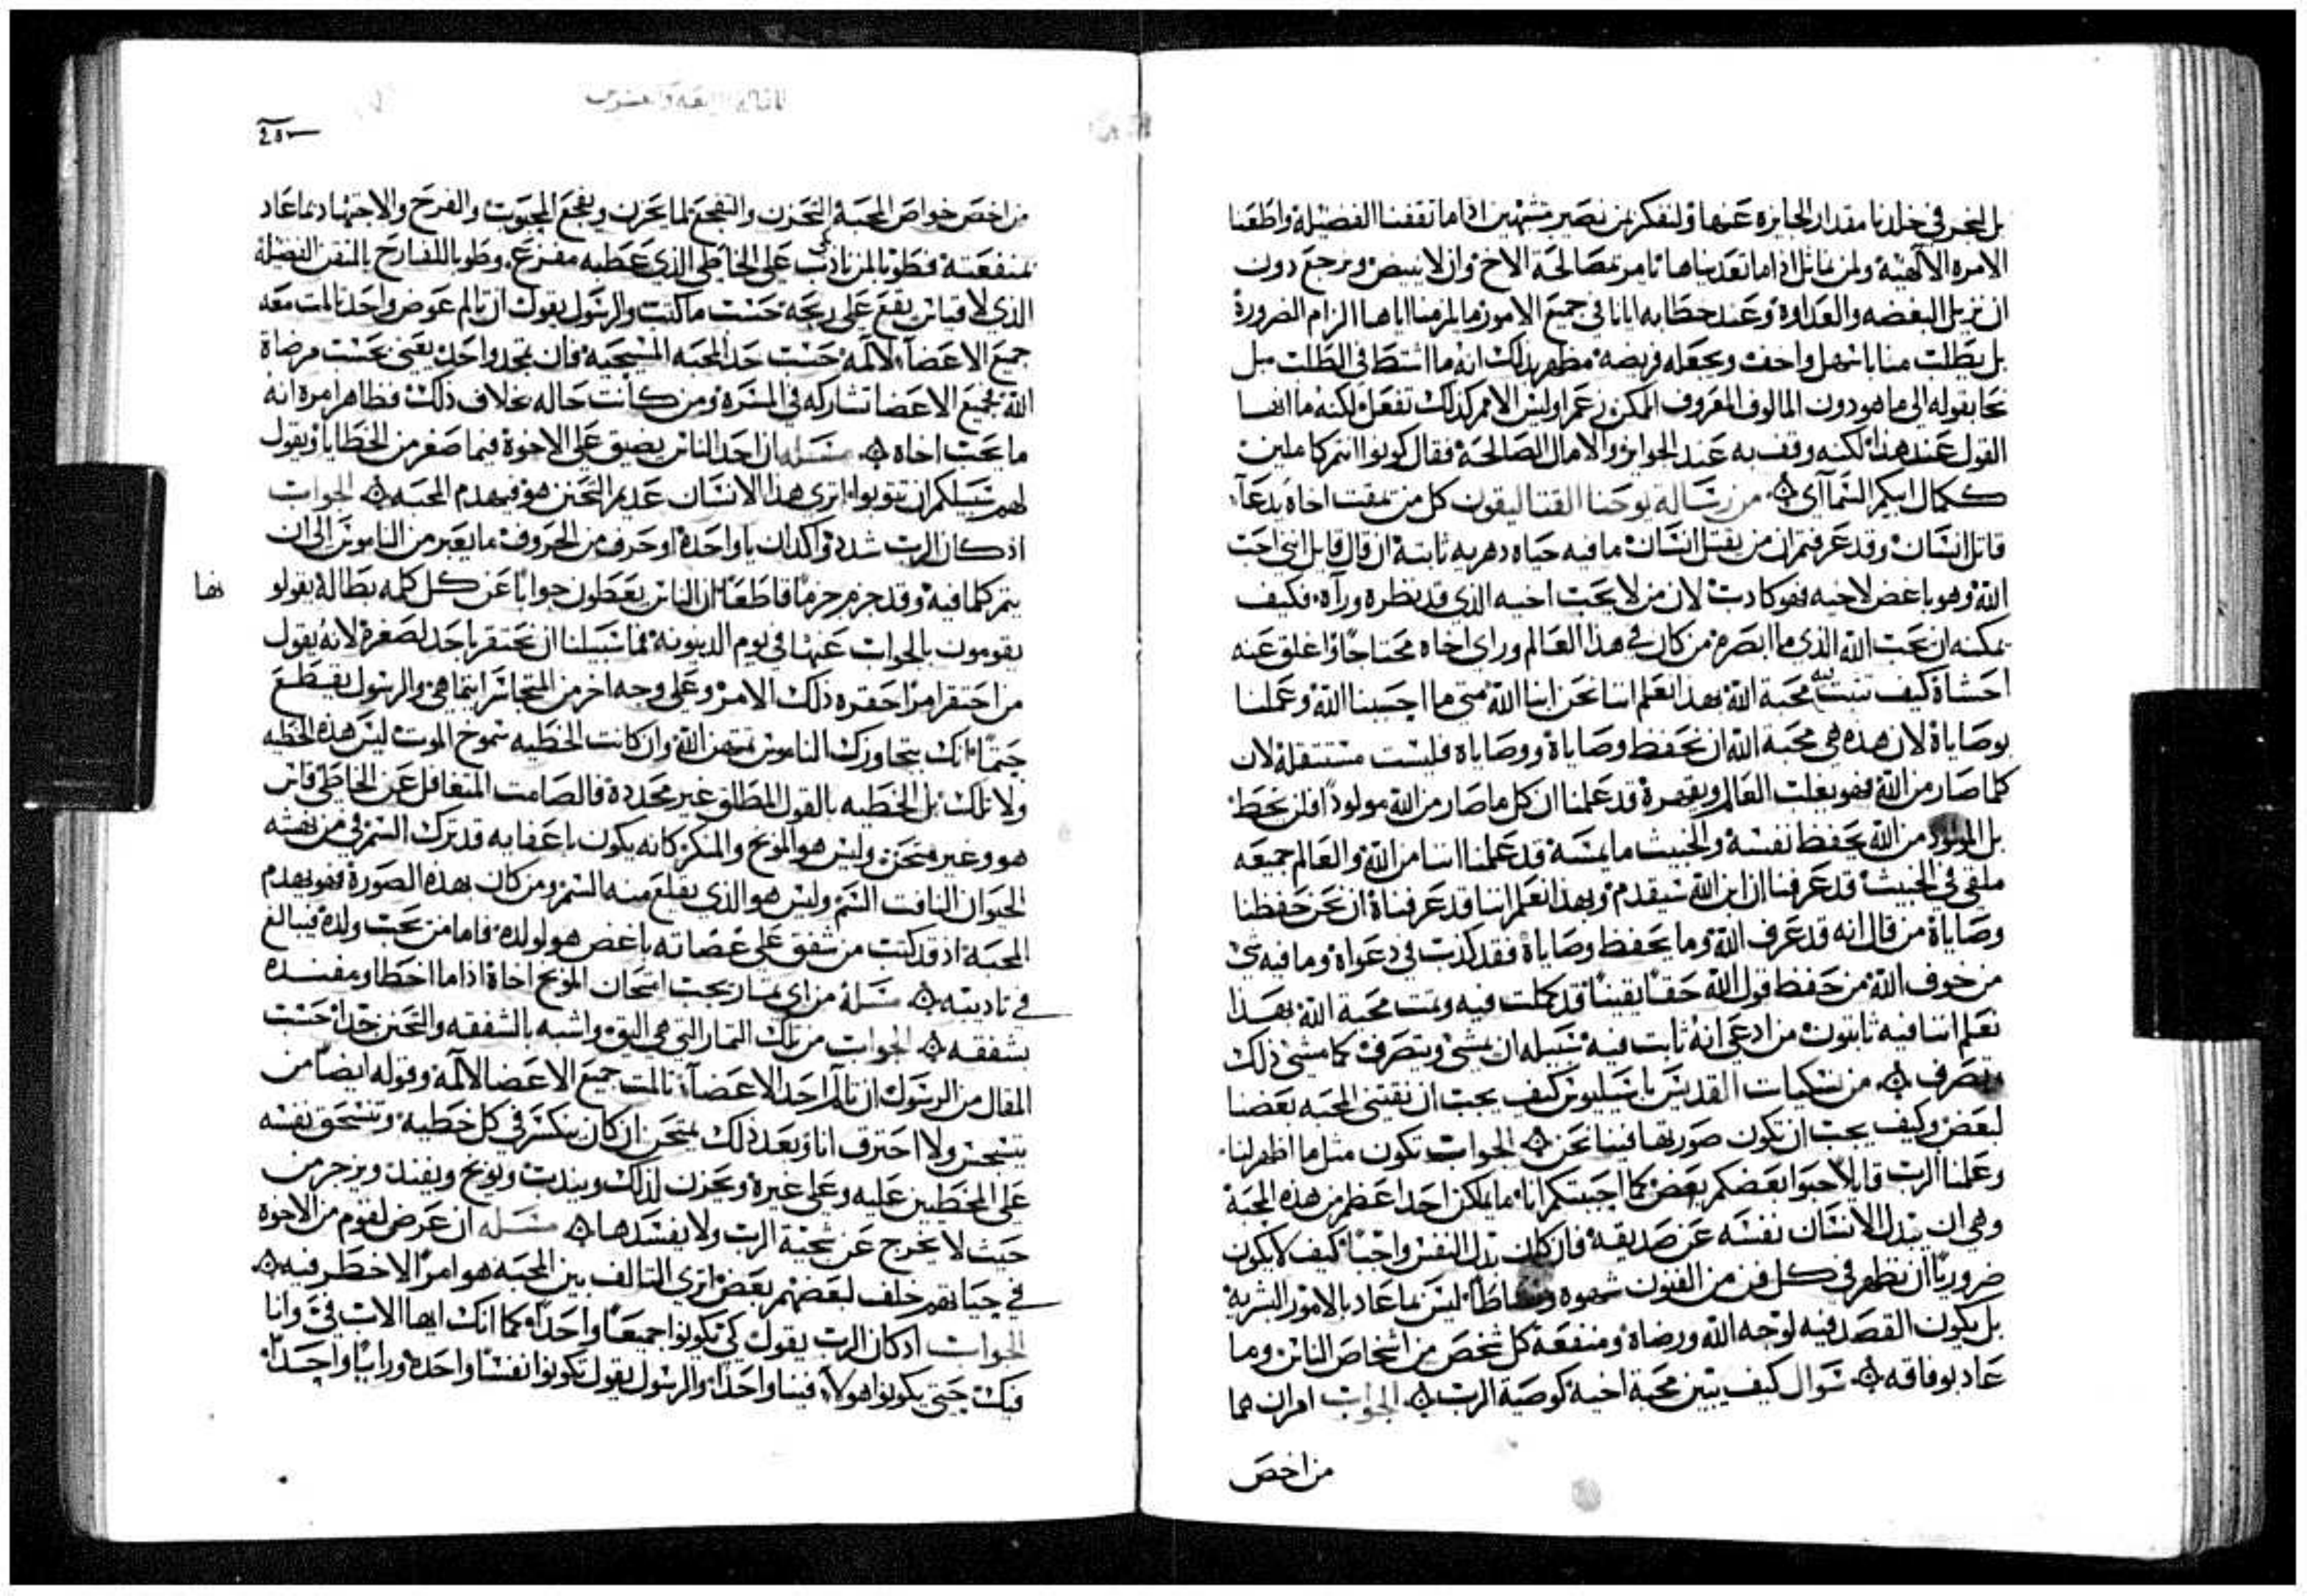 بل لنخبر في خلدنا مقدار الجايزه عنها ولنفكر بمن نصير مشبهين اذا ما نقفنا الفضيله واطعنا
الامره الالهيه ولمن نماثل اذا ما تعديناها تامر بمصالحة الاخ وان لا يبيض ويرجع دون
ان نزيل البغضه والعداوة وعند خطابه ايانا في جميع الامور ما لزمنا اياها الزام الضرورة
بل يطلب منا ما اسهل واخف ويجعله فريضه مظهر بذلك انه ما اشتط في الطلب ميل
نحا بقوله الى ما هو دون المالوف المعروف الممكن زعم اوليس الامم كذلك تفعل لكنه ما انها
القول عند هذا لكنه وقف به عند الجوايز والامال الصالحة فقال كونوا انتم كاملين
ككمال ابيكم السمآاي من رسالة يوحنا القتاليقون كل من يمقت اخاه يدعآ
قاتل انسان وقد عرفتم ان من يقتل انسان ما فيه حياه دهريه ثابتة ان قال قايل انني احب
الله وهو باغض لاخيه فهو كادب لان من لا يحب اخيه الذي قد نظره ورآه فكيف
يمكنه ان يحب الله الذي ما ابصره من كان في هذا العالم وراى اخاه محتاجا واغلق عنه
احشاه كيف تثبت فيه محبة الله بهذا نعلم اننا نحن ابنا الله متى ما احببنا الله وعملنا
بوصاياه لان هذه هي محبة الله ان نحفظ وصاياه ووصاياه فليست مستثقلة لان
كلما صار من الله فهو يغلب العالم ويقهره قد علمنا ان كل ما صار من الله مولودا فلن يخط
بل المولود من الله يحفظ نفسه والخبيث ما يمسه قد علمنا اننا من الله والعالم جميعه
ملقى في الخبيث قد عرفنا ان ابن الله سيقدم وبهذا نعلم اننا قد عرفناه ان نحن حفظنا
وصاياه من قال انه قد عرف الله وما يحفظ وصاياه فقد كذب في دعواه وما فيه شي
من خوف الله من حفظ قول الله حقا يقينا قد كملت فيه وتمت محبة الله بهذا
نعلم اننا فيه ثابتون من ادعى انه ثابت فيه سبيله ان يمشي ويتصرف كما مشى ذلك
وتصرف من نسكيات القديس باسيليوس كيف يجب ان نقتني المحبه بعضنا
لبعض وكيف يجب ان تكون صورتها فينا نحن الجواب تكون مثل ما اظهر لنا
وعلمنا الرب قايلا احبوا بعضكم بعض كما احببتكم انا ما يمكن احدا اعظم من هذه المحبة
وهي ان يبدل الانسان نفسه عن صديقه فان كان بدل النفس واجبا كيف لا يكون
ضروريا ان نظهر في كل فن من الفنون شهوه ونشاطا ليس بما عاد بالامور البشرية
بل يكون القصد فيه لوجه الله ورضاه ومنفعة كل شخص من اشخاص الناس وما
عاد بوفاقه سوال كيف يتبين محبة اخيه كوصية الرب الجواب امران هما
من اخص
من اخص خواص المحبة التحزن والتفجع لما يحزن ويفجع المحبوب والفرح والاجتهاد بما عاد
بمنفعته فطوبا لمن نادب على الخاطي الذي عطبه مفزع وطوبا للفارح بالمتقن الفضيلة
الذي لا قياس يقع على ربحه حسب ما كتب والرسول يقول ان تالم عوض واحد تالمت معه
جميع الاعضآ لالمه حسب حد المحبه المسيحيه فان تمجد واحد يعني بحسب مرضاة
الله فجميع الاعضا تشاركه في المسره ومن كانت حاله بخلاف ذلك فظاهر امره انه
ما يحب اخاه مسله ان احد الناس يضيق على الاخوة فيما صغر من الخطايا ويقول
لهم سبيلكم ان تتوبوا اترى هذا الانسان عديم التحنن هو فيهدم المحبه الجواب
اذ كان الرب شدد واكد ان ياواحدة او حرف من الحروف ما يعبر من الناموس الى ان
يتم كلما فيه وقد جزم جزما قاطعا ان الناس يعطون جوابا عن كل كلمه بطاله يقولونها
يقومون بالجواب عنها في يوم الدينونه فما سبيلنا ان نحتقر باحد لصغره لانه يقول
من احتقر امرا احقره ذلك الامر وعلى وجه اخر من المتجاسر انما هي والرسول يقطع
حتما انك بتجاوزك الناموس تمتهن الله وان كانت الخطيه شموخ الموت ليس هذه الخطيه
ولا تلك بل الخطيه بالقول المطلق غير محددة فالصامت المتغافل عن الخاطي قاس
هو وغير متحنن وليس هو الموبخ والمنكر كانه يكون باعفايه قد ترك السم في من نهشه
الحيوان النافث السم وليس هو الذي يقلع منه السم ومن كان بهذه الصورة فهو يهدم
المحبة اذ قد كتب من شفق على عصاته باغض هو لولده فاما من يحب ولده فيبالغ
في تاديبه مسلة من اي ثمار يجب امتحان الموبخ اخاه اذا ما اخطا ومفنده
بشفقه الجواب من تلك الثمار التي هي اليق واشبه بالشفقه والتحنن جدا حسب
المقال من الرسول ان تالم احد الاعضآ تالمت جميع الاعضا لالمه وقوله ايضا من
يتسجس ولا احترق انا وبعد ذلك يمتحن ان كان ينكسر في كل خطيه وتنسحق نفسه
على المخطيين عليه وعلى غيره ويحزن لذلك ويندب ويوبخ ويفند ويزجر من
حيث لا يخرج عن سجية الرب ولا يفسدها مسله ان عرض لقوم من الاخوة
في حياتهم خلف لبعضهم بعض اترى التالف بين المحبه هو امرا لا خطر فيه
الجواب اذ كان الرب يقول كي تكونوا جميعا واحدا كما انك ايها الاب في وانا
فيك حتى يكونوا هولآ فينا واحدا والرسول يقول تكونوا نفسا واحدة ورايا واحدا